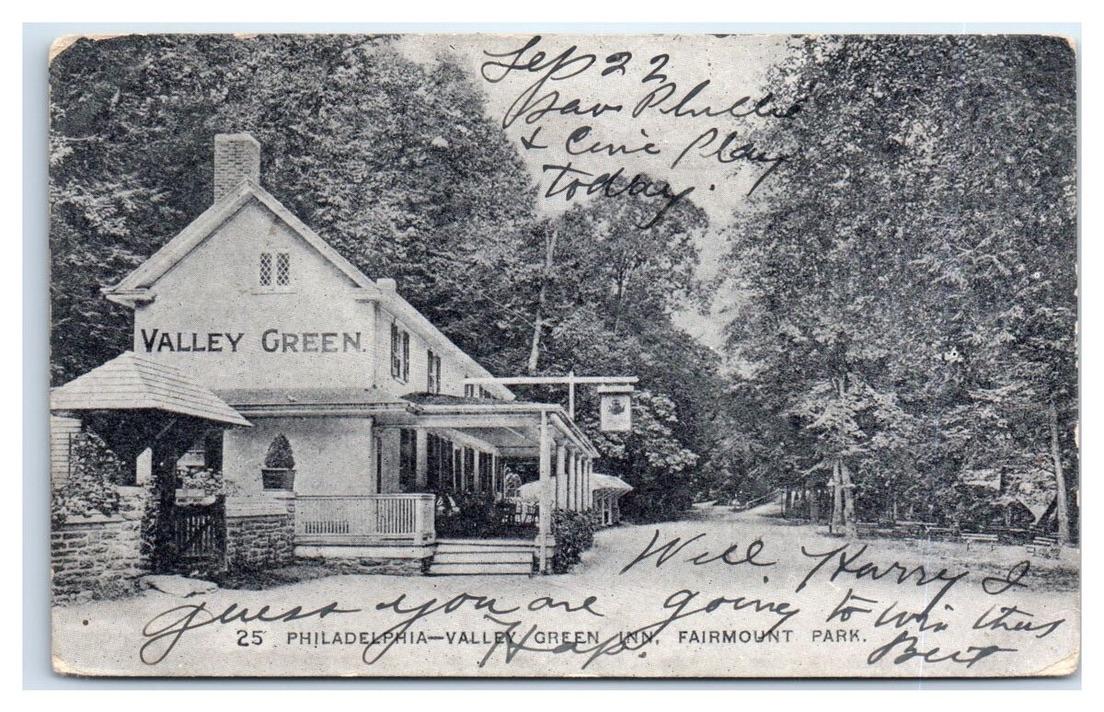 Sep 22
Saw Phillie
& Cine Play
today.
VALLEY GREEN.
Well Harry I
guess you are going to win this
25 PHILADELPHIA—VALLEY GREEN INN, FAIRMOUNT PARK.
Hap. Bert